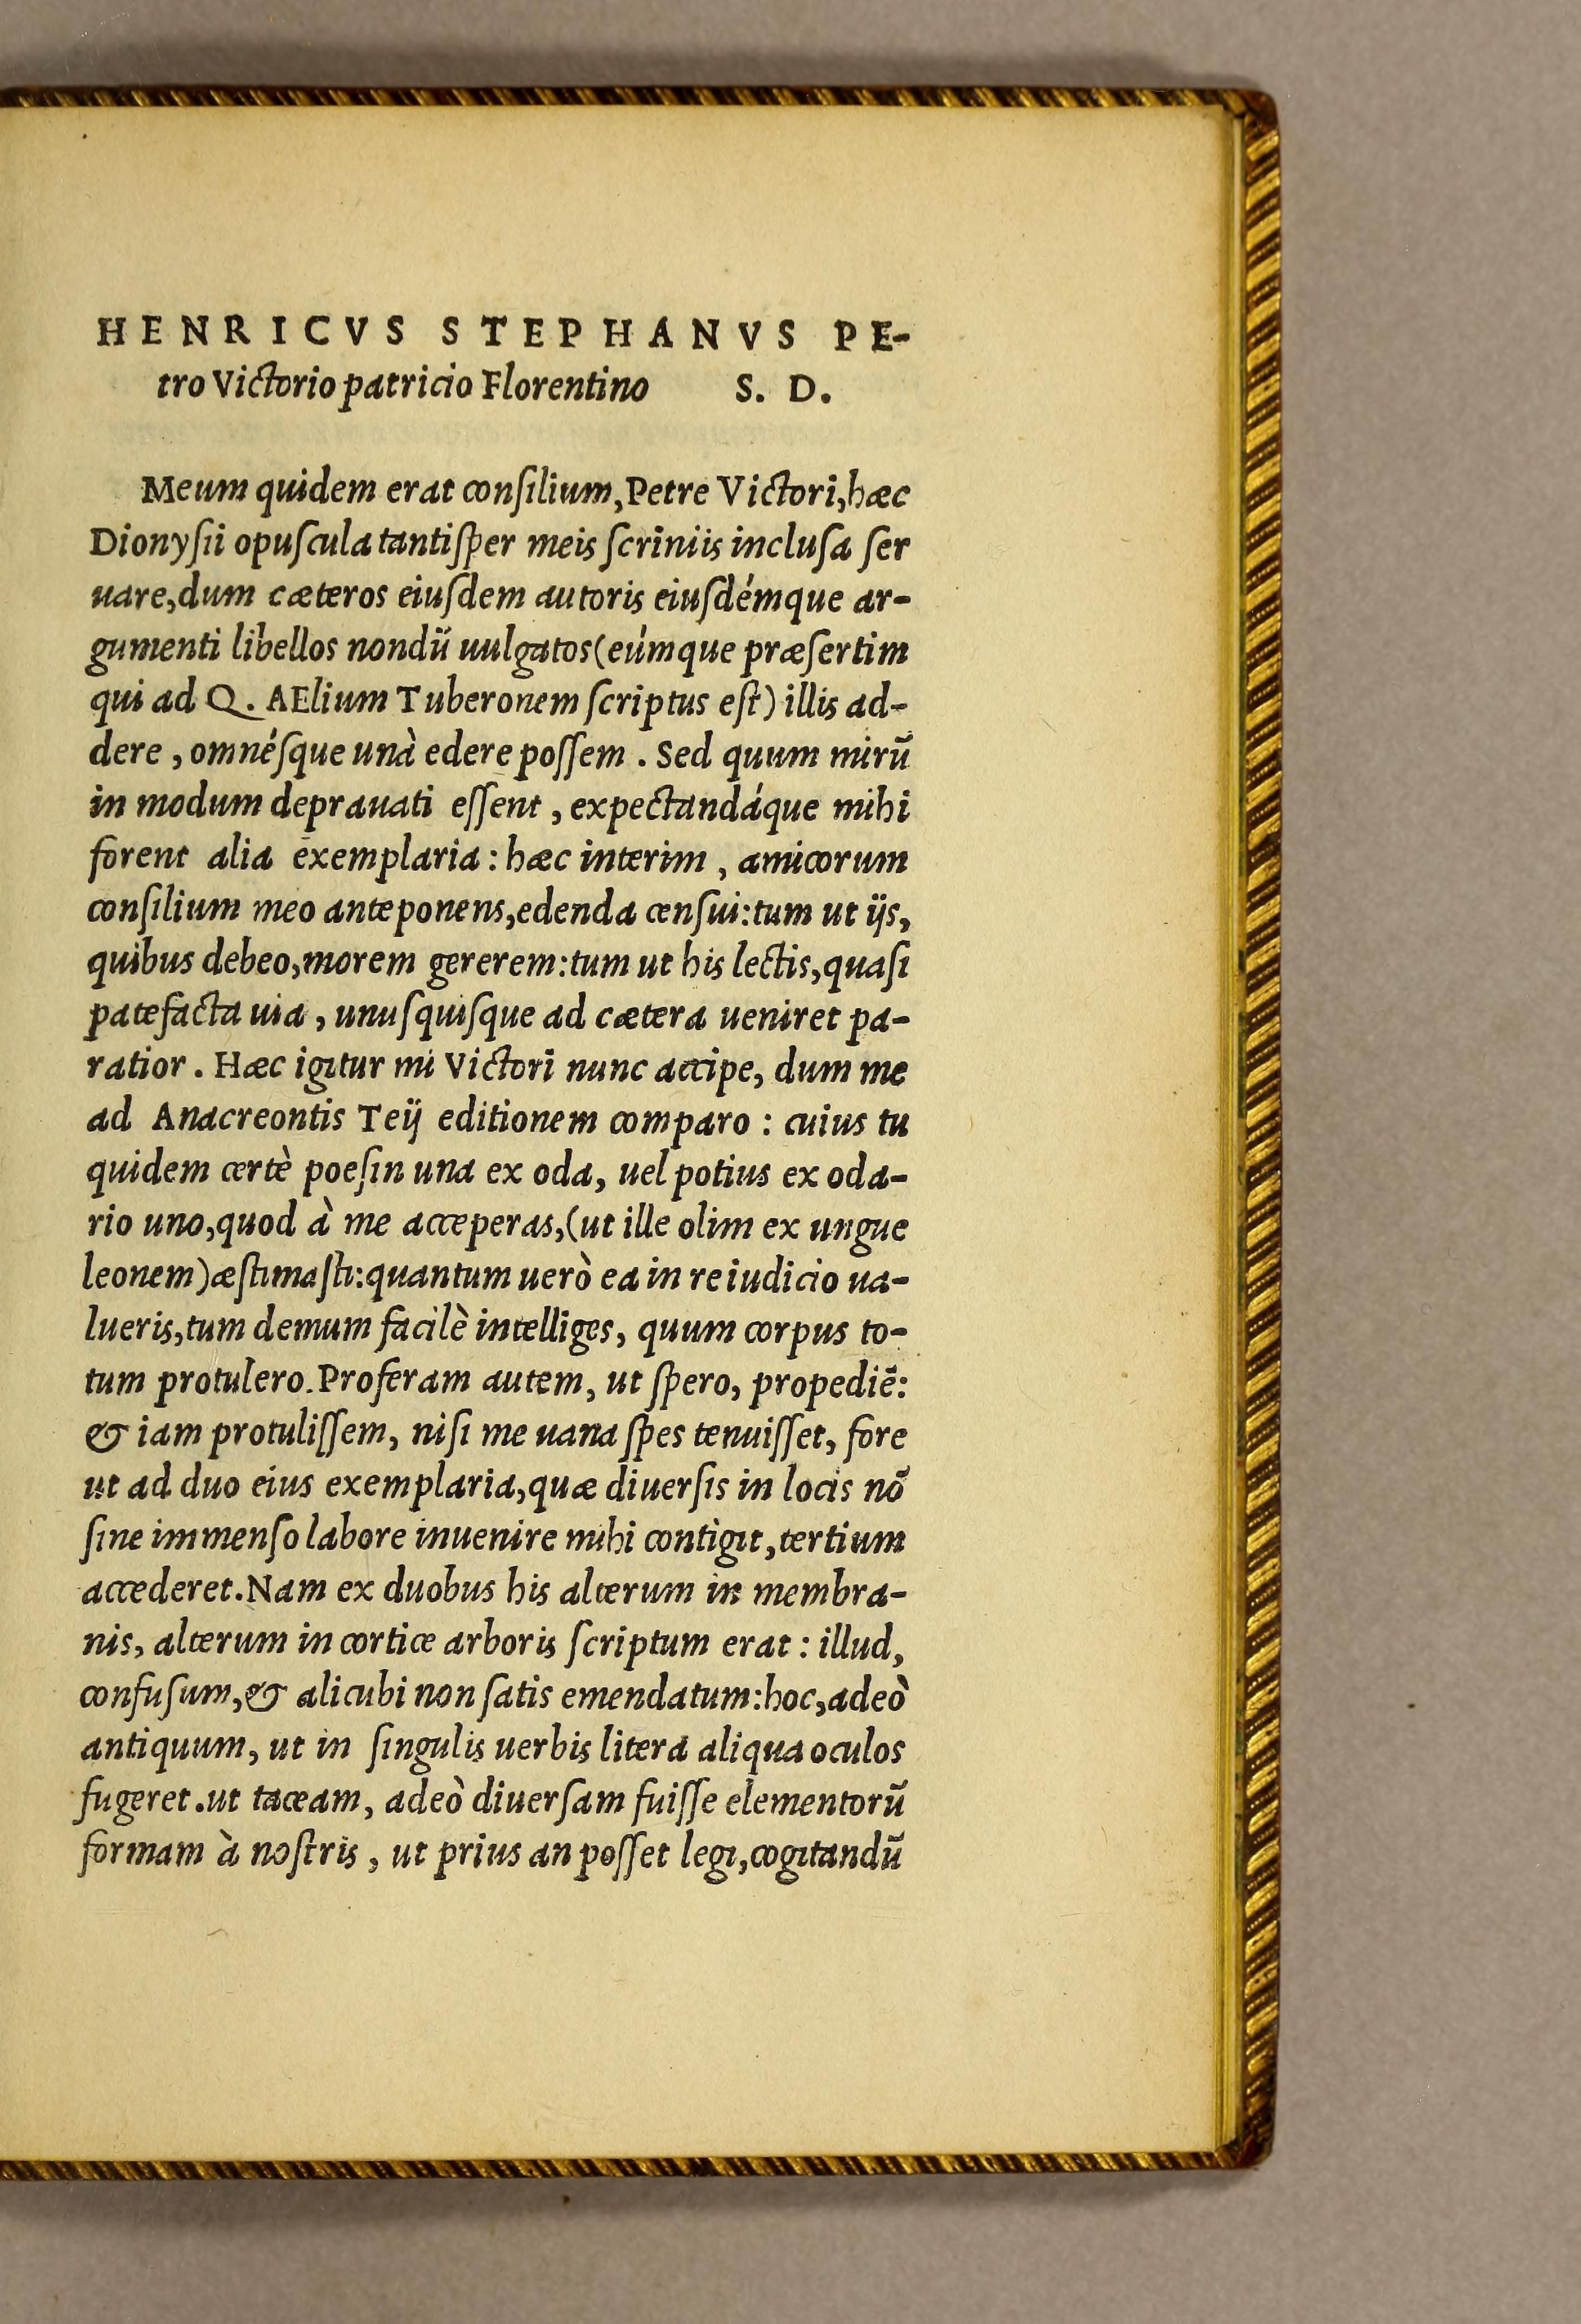 HENRICVS STEPHANVS PE-
tro Victorio patricio Florentino S. D.
Meum quidem erat conſilium,Petre Victori,hæc
Dionyſii opuſcula tantiſper meis ſcriniis incluſa ſer
uare,dum cæteros eiuſdem autoris eiuſdémque ar-
gumenti libellos nondū uulgatos(eúmque præſertim
qui ad Q. AElium Tuberonem ſcriptus eſt) illis ad-
dere , omnéſque unà edere poſſem . Sed quum mirū
in modum deprauati eſſent , expectandáque mihi
forent alia exemplaria : hæc interim , amicorum
conſilium meo anteponens,edenda cenſui:tum ut ijs,
quibus debeo,morem gererem:tum ut his lectis,quaſi
patefacta uia , unuſquiſque ad cætera ueniret pa-
ratior . Hæc igitur mi Victori nunc accipe, dum me
ad Anacreontis Teij editionem comparo : cuius tu
quidem certè poeſin una ex oda, uel potius ex oda-
rio uno,quod à me acceperas,(ut ille olim ex ungue
leonem)æſtimaſti:quantum uerò ea in re iudicio ua-
lueris,tum demum facilè intelliges, quum corpus to-
tum protulero.Proferam autem, ut ſpero, propediē:
& iam protuliſſem, niſi me uana ſpes tenuiſſet, fore
ut ad duo eius exemplaria,quæ diuerſis in locis nō
ſine immenſo labore inuenire mihi contigit,tertium
accederet.Nam ex duobus his alterum in membra-
nis, alterum in cortice arboris ſcriptum erat : illud,
confuſum,& alicubi non ſatis emendatum:hoc,adeò
antiquum, ut in ſingulis uerbis litera aliqua oculos
fugeret.ut taceam, adeò diuerſam fuiſſe elementorū
formam à noſtris , ut prius an poſſet legi,cogitandū